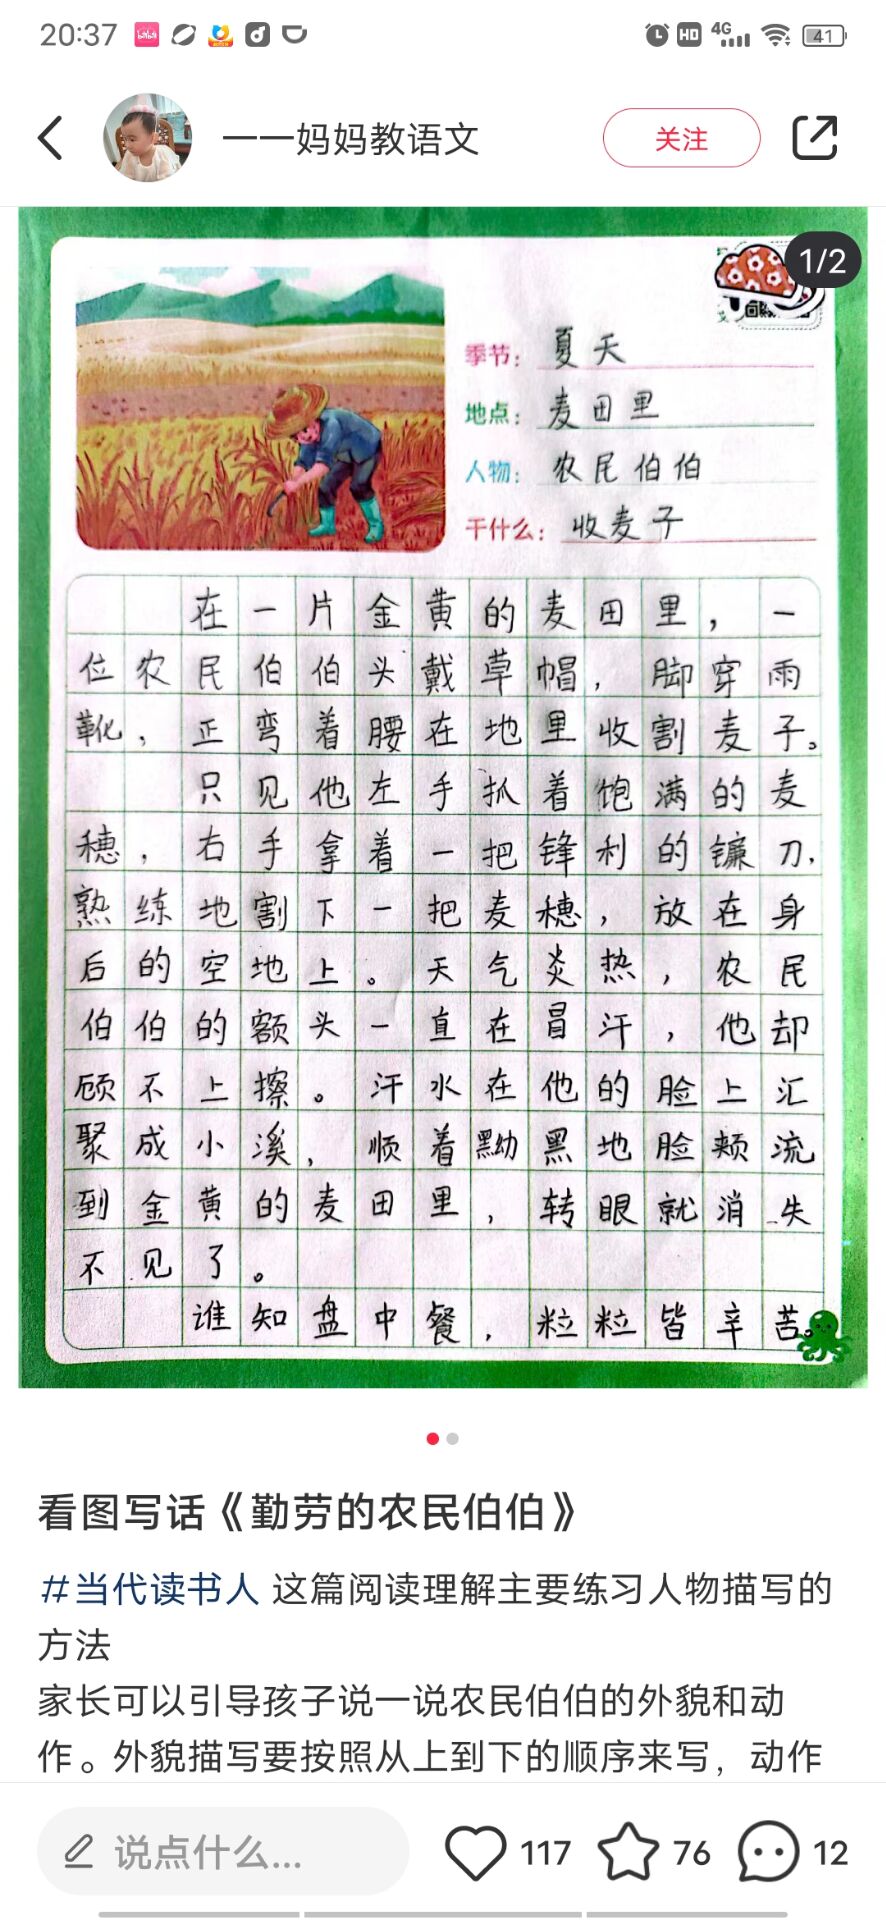 20:37
HD 4G 41
一一妈妈教语文
关注
1/2
季节：夏天
地点：麦田里
人物：农民伯伯
干什么：收麦子
在一片金黄的麦田里，一
位农民伯伯头戴草帽，脚穿雨
靴，正弯着腰在地里收割麦子。
只见他左手抓着饱满的麦
穗，右手拿着一把锋利的镰刀，
熟练地割下一把麦穗，放在身
后的空地上。天气炎热，农民
伯伯的额头一直在冒汗，他却
顾不上擦。汗水在他的脸上汇
聚成小溪，顺着黝黑地脸颊流
到金黄的麦田里，转眼就消失
不见了。
谁知盘中餐，粒粒皆辛苦。
看图写话《勤劳的农民伯伯》
#当代读书人 这篇阅读理解主要练习人物描写的
方法
家长可以引导孩子说一说农民伯伯的外貌和动
作。外貌描写要按照从上到下的顺序来写，动作
说点什么...
117
76
12